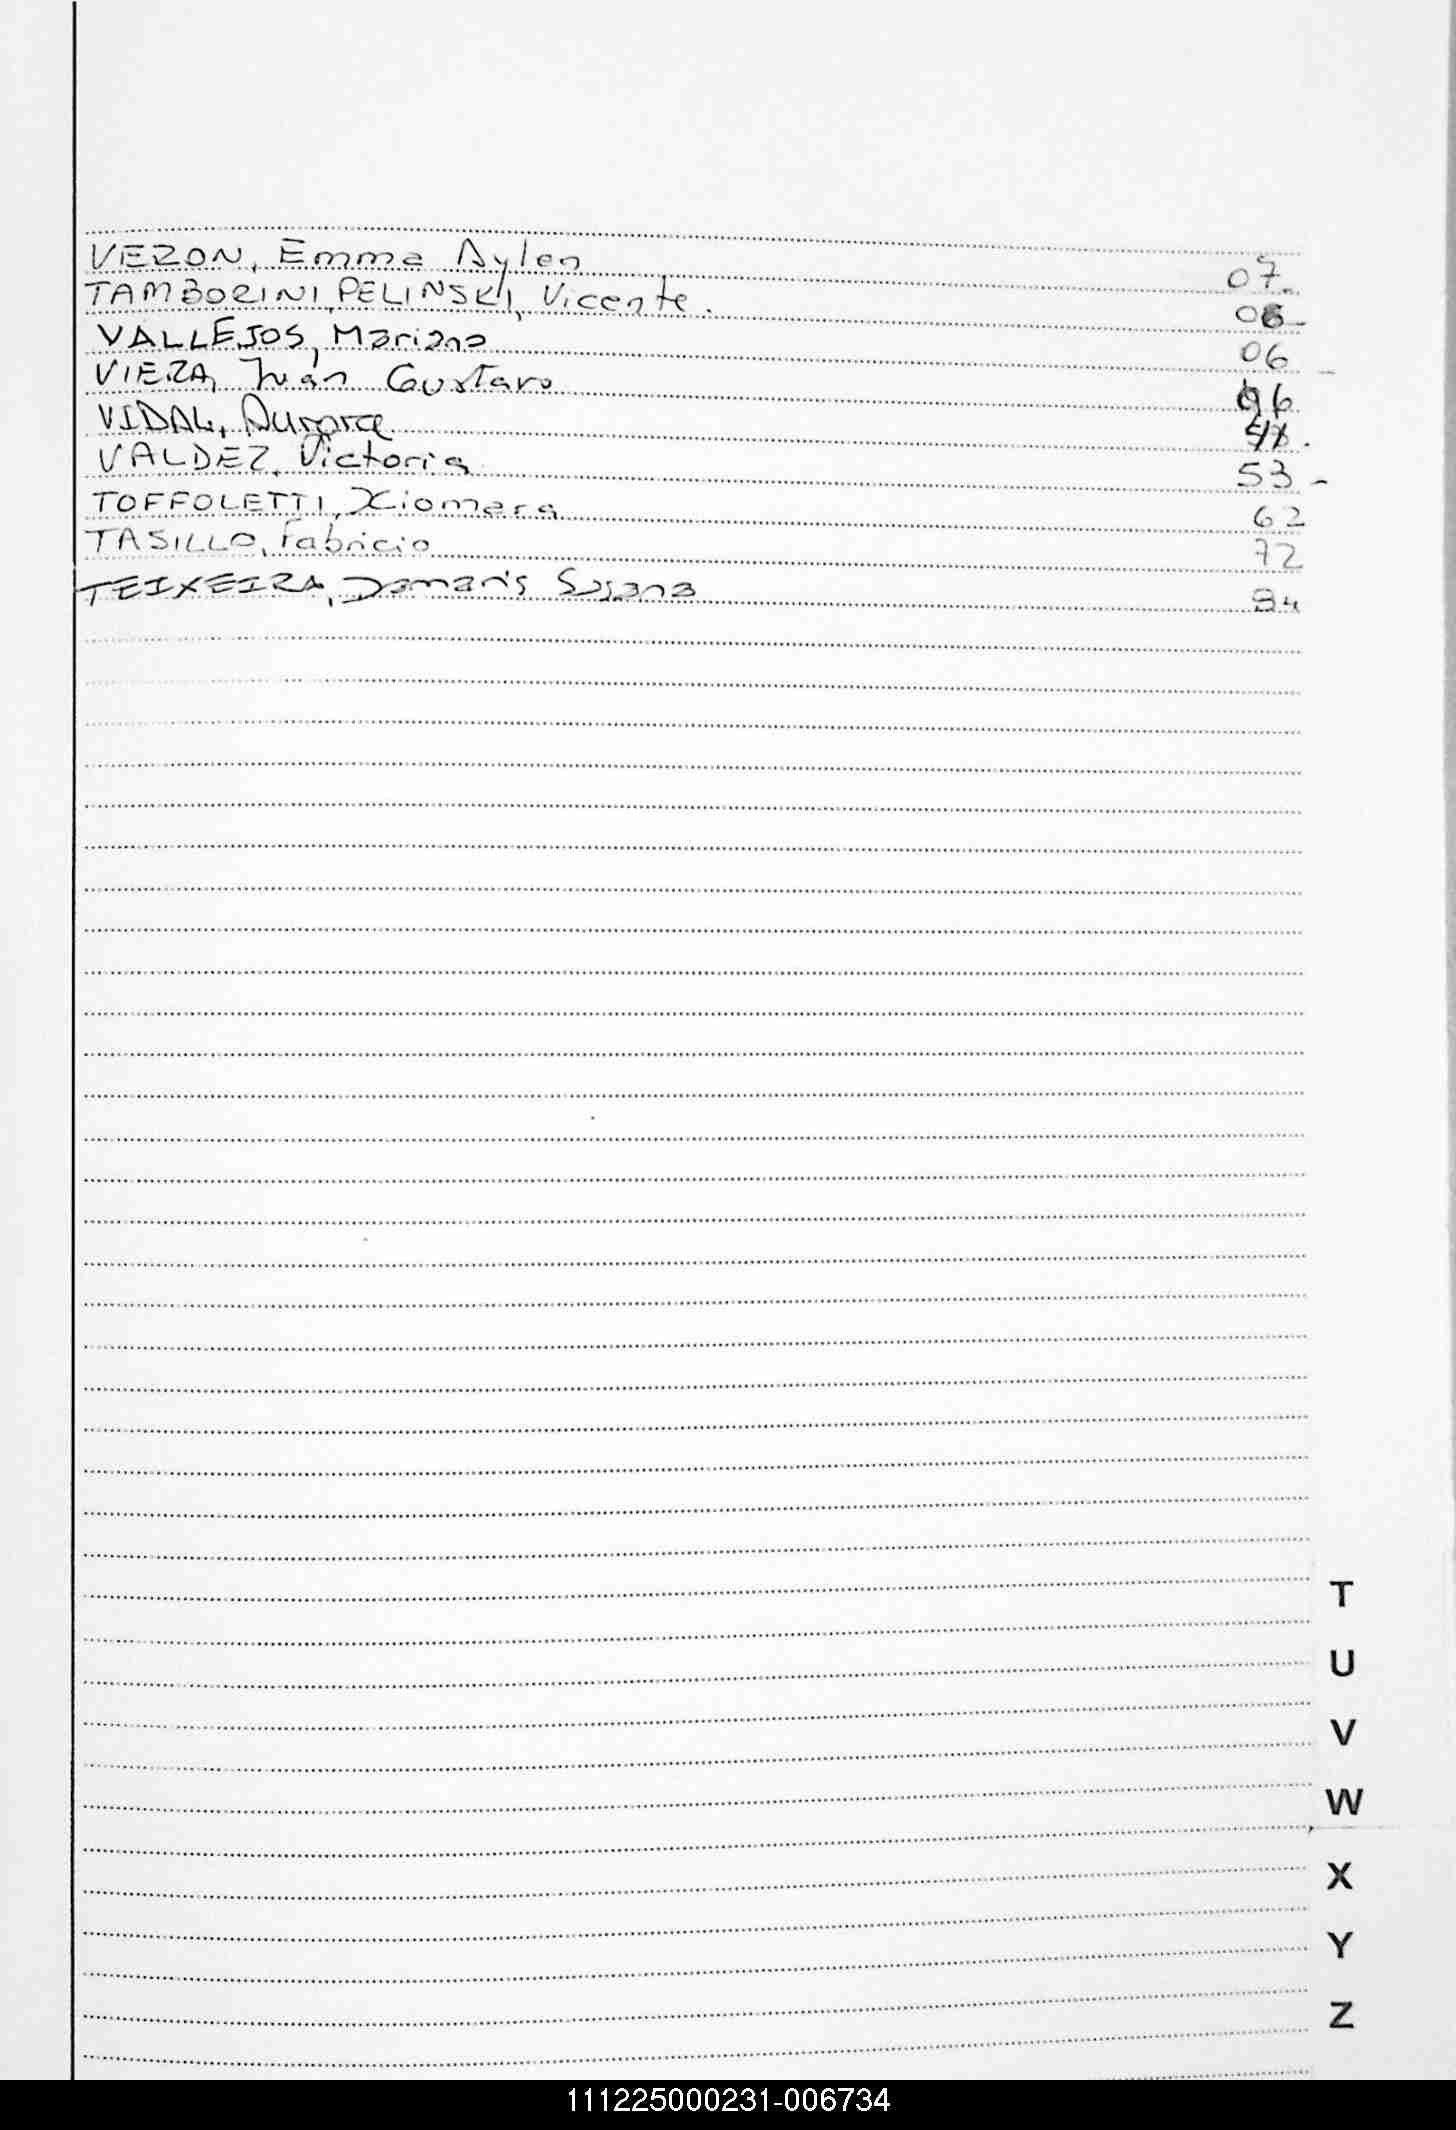 VERON, Emma Aylen 07.
TAMBORINI PELINSKI, Vicente. 06-
VALLEJOS, Mariano 06 -
VIERA, Iván Gustavo 06
VIDAL, Aurora
VALDEZ, Victoria 53 -
TOFFOLETTI, Xiomara 62
TASILLO, Fabricio 72
TEIXEIRA, Damaris Susana 94
T
U
V
W
X
Y
Z
111225000231-006734